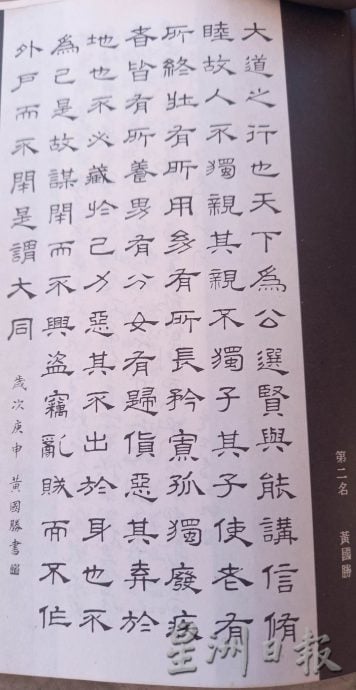 大道之行也天下為公選賢與能講信脩
睦故人不獨親其親不獨子其子使老有
所終壯有所用幼有所長矜寡孤獨廢疾
者皆有所養男有分女有歸貨惡其弃於
地也不必藏於己力惡其不出於身也不
為己是故謀閉而不興盜竊亂賊而不作
外戶而不閉是謂大同
歲次庚申 黃國勝書
第二名 黃國勝
星洲日報